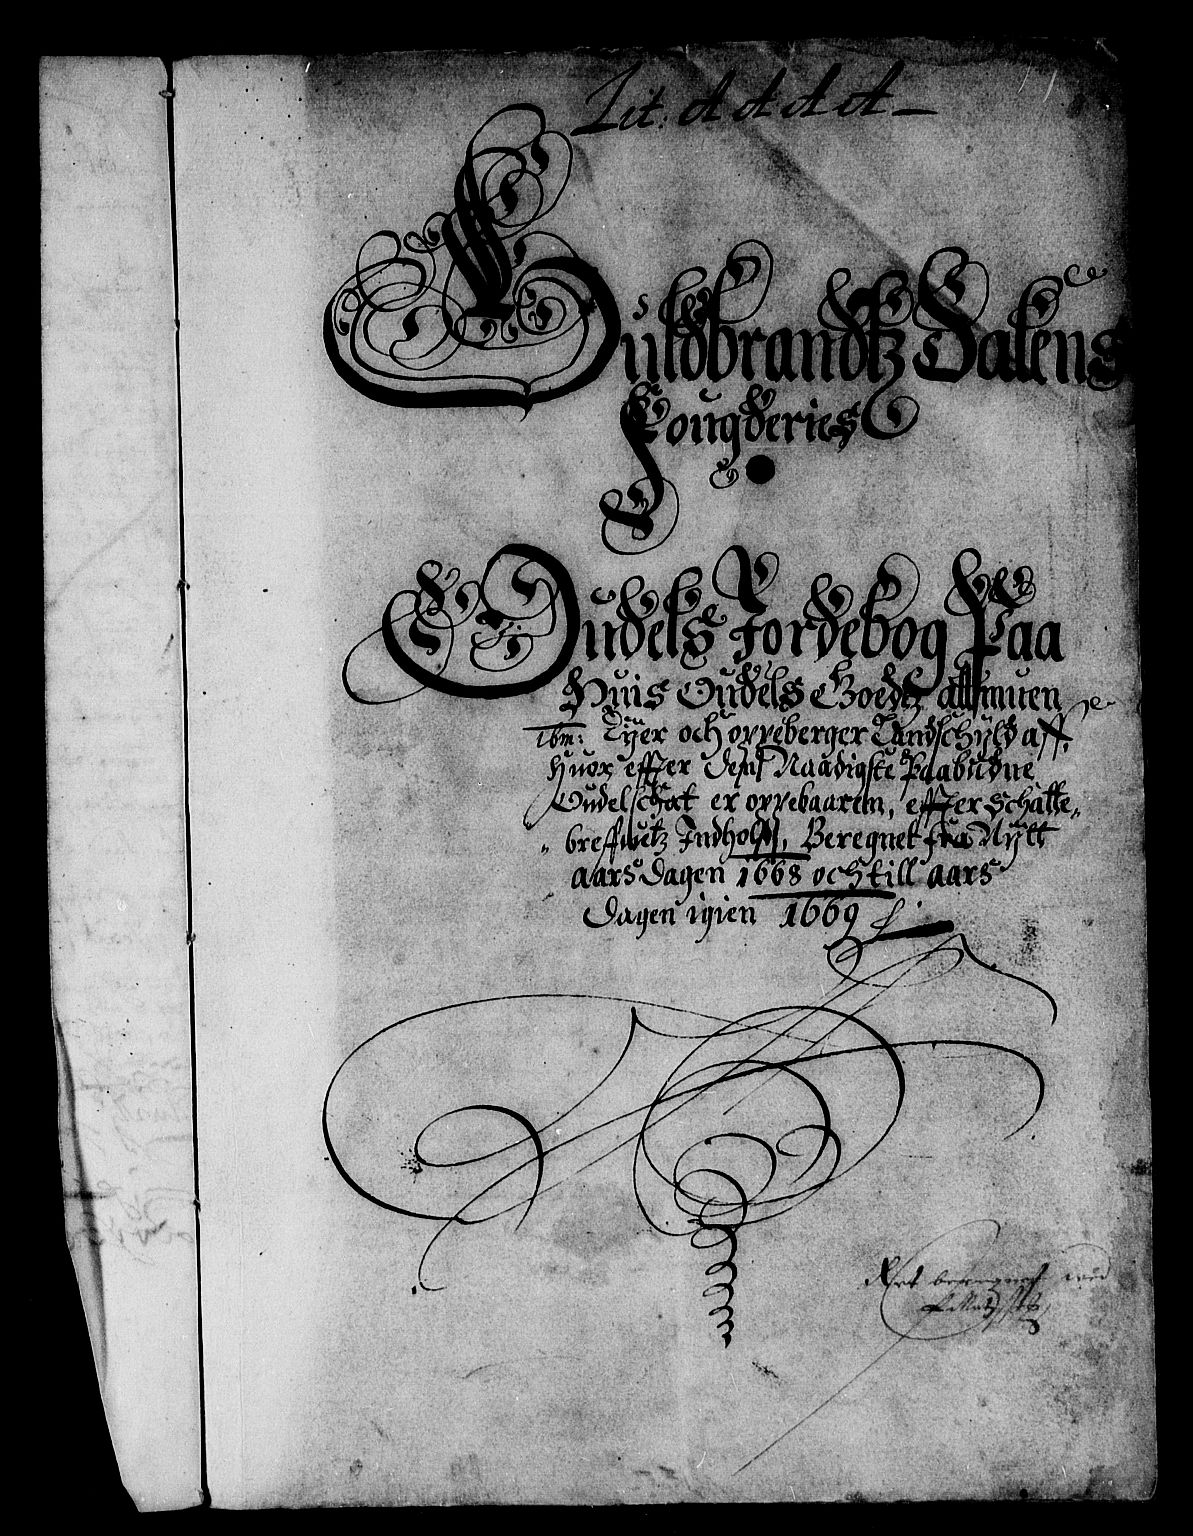 Lit: A A A A
Guldbrandtz Dalens
Fougderies
Oudels Jordebog Paa
Huis Oudels Goedtz Allmuen
Ibm: Eyer och oppeberger Landschyld aff,
huor effter dens Naadigste Paabudne
Oudelschat er oppebaaren, effter Schatte-
breffuetz Indhold, Beregnet fra Nytt
aars dagen 1668 och till aars
dagen igien 1669
Ret beregnet